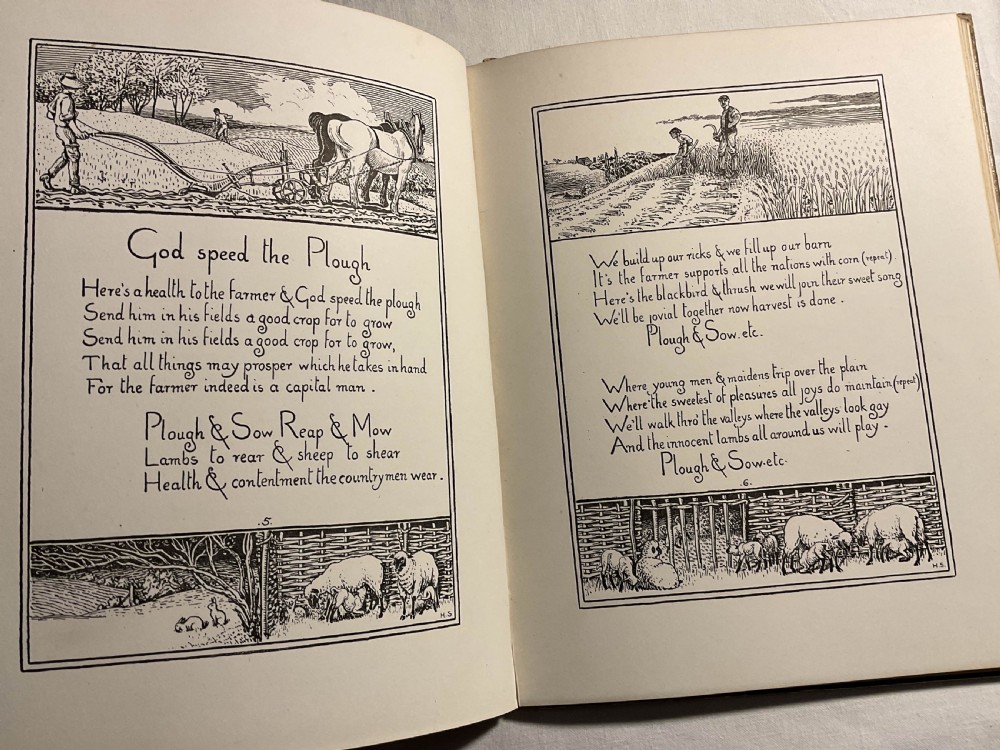 God speed the Plough
Here's a health to the farmer & God speed the plough
Send him in his fields a good crop for to grow
Send him in his fields a good crop for to grow,
That all things may prosper which he takes in hand
For the farmer indeed is a capital man.
Plough & Sow Reap & Mow
Lambs to rear & sheep to shear
Health & contentment the countrymen wear.
.5.
H.S
We build up our ricks & we fill up our barn
It's the farmer supports all the nations with corn (repeat).
Here's the blackbird & thrush we will join their sweet song
We'll be jovial together now harvest is done.
Plough & Sow. etc.
Where young men & maidens trip over the plain
Where the sweetest of pleasures all joys do maintain (repeat)
We'll walk thro' the valleys where the valleys look gay
And the innocent lambs all around us will play.
Plough & Sow. etc.
.6.
H.S.